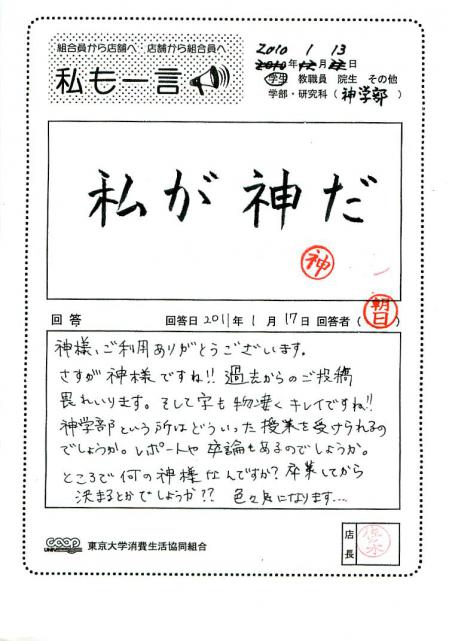 組合員から店舗へ 店舗から組合員へ
私も一言
2010 1 13
2010年12月22日
学生 教職員 院生 その他
学部・研究科(神学部)
私が神だ
神
回答 回答日2011年1月17日 回答者(朝日)
神様、ご利用ありがとうございます。
さすが神様ですね!! 過去からのご投稿
畏れいります。そして字も物凄くキレイですね!!
神学部という所はどういった授業を受けられるの
でしょうか。レポートや卒論もあるのでしょうか。
ところで何の神様なんですか? 卒業してから
決まるとかでしょうか?? 色々気になります…
COOP UNIV. 東京大学消費生活協同組合
店長